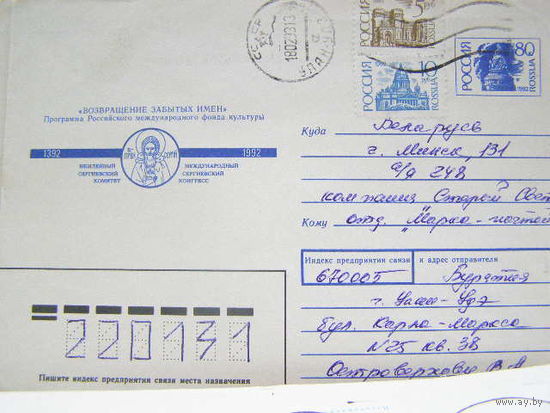 5
РОССИЯ
ROSSIJA
10
РОССИЯ
ROSSIJA
80
РОССИЯ
ROSSIJA
1992
18021913
«ВОЗВРАЩЕНИЕ ЗАБЫТЫХ ИМЕН»
Программа Российского международного фонда культуры
1392
1992
ЮБИЛЕЙНЫЙ
СЕРГИЕВСКИЙ
КОМИТЕТ
МЕЖДУНАРОДНЫЙ
СЕРГИЕВСКИЙ
КОНГРЕСС
Куда Беларусь
г. Минск, 131
а/я 248
компания "Старый Свет"
Кому отд. "Марко-почтой"
Индекс предприятия связи и адрес отправителя
670005 Бурятия
г. Улан-Удэ
бул. Карла-Маркса
N25 кв. 38
В А
220131
Пишите индекс предприятия связи места назначения
www.ay.by